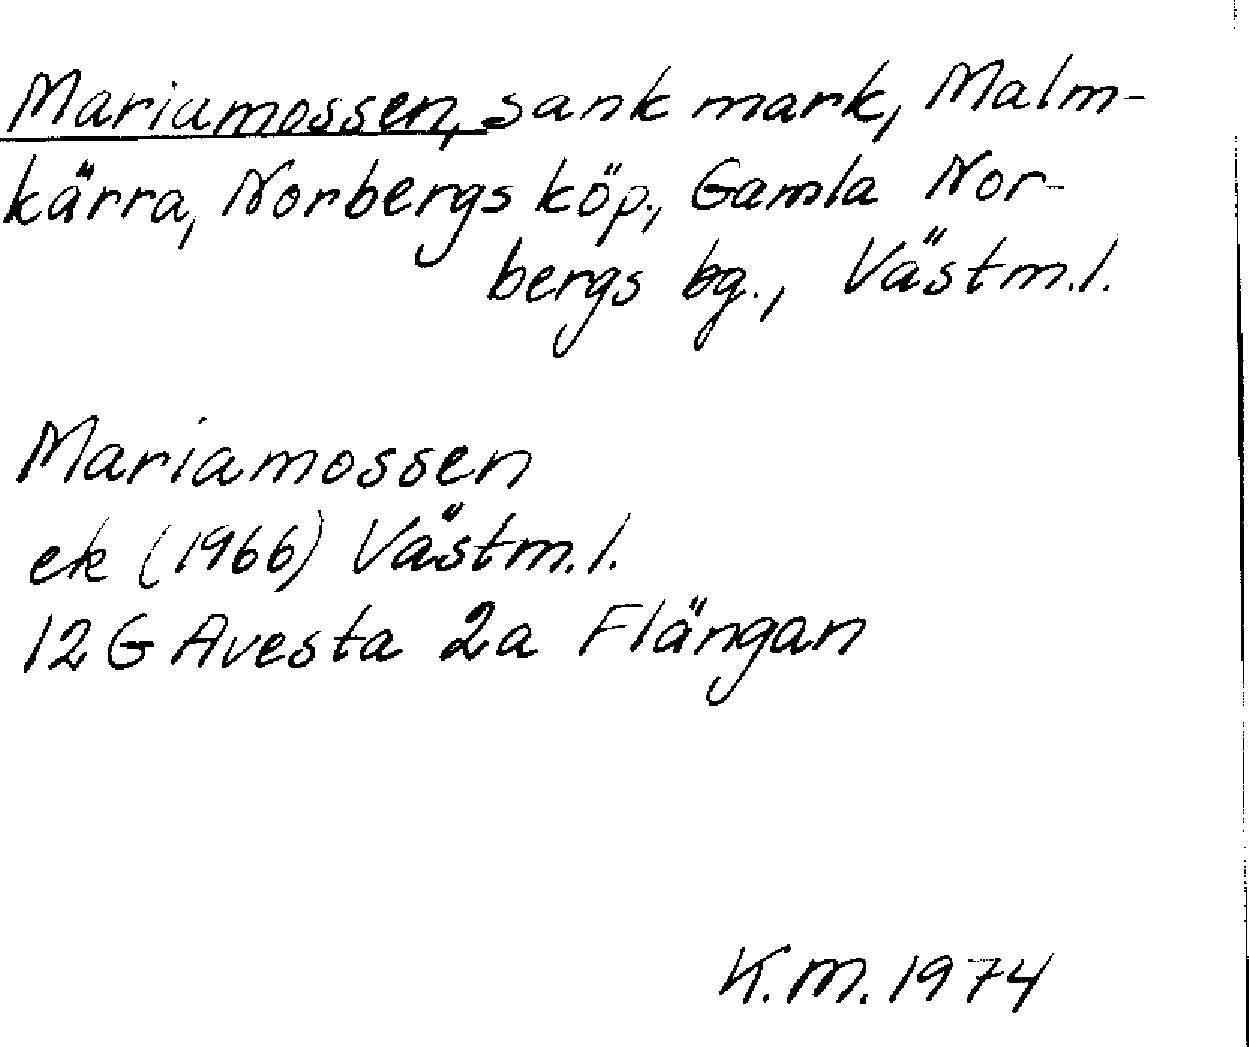 Mariamossen, sank mark, Malm-
kärra, Norbergs köp., Gamla Nor-
bergs bg., Västm.l.
Mariamossen
ek (1966) Västm.l.
12G Avesta 2a Flängan
K.M. 1974